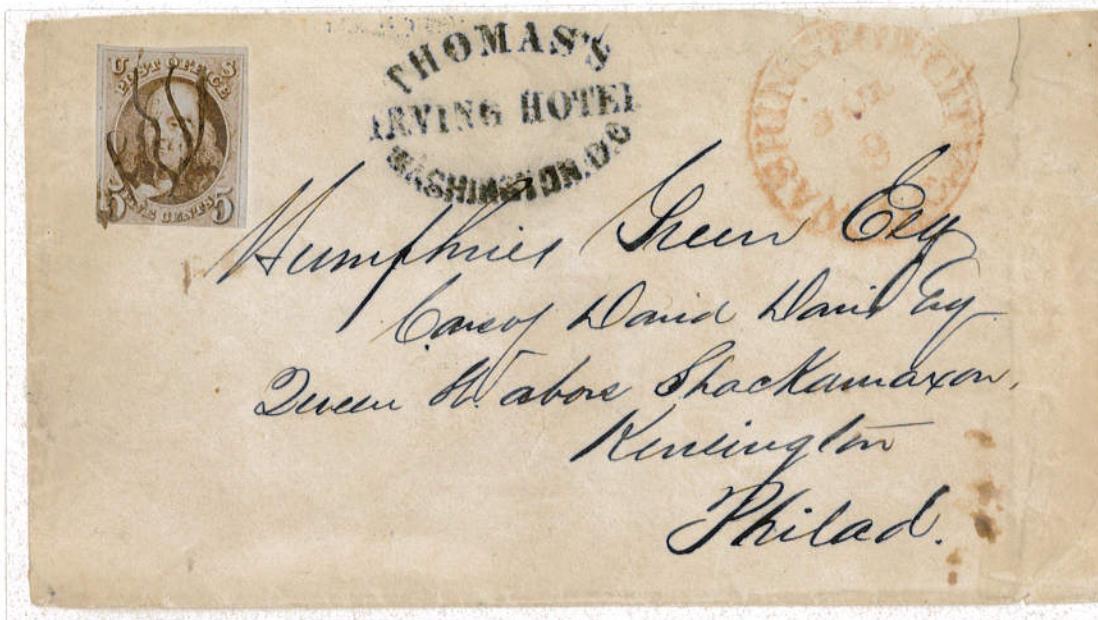 U S
POST OFFICE
5 FIVE CENTS 5
THOMAS'S
IRVING HOTEL
WASHINGTON. D.C
WASHINGTON CITY
Humphries Green Esq
Care of David David Esq.
Queen St. above Shackamaxon,
Kensington
Philad.